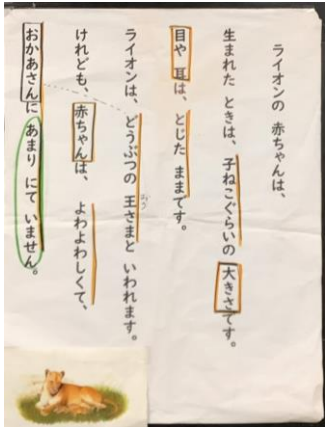 ライオンの 赤ちゃんは、
生まれた ときは、子ねこぐらいの 大きさです。
目や 耳は、とじた ままです。
ライオンは、どうぶつの 王さまと いわれます。
おう
けれども、赤ちゃんは、 よわよわしくて、
おかあさんに あまり にて いません。